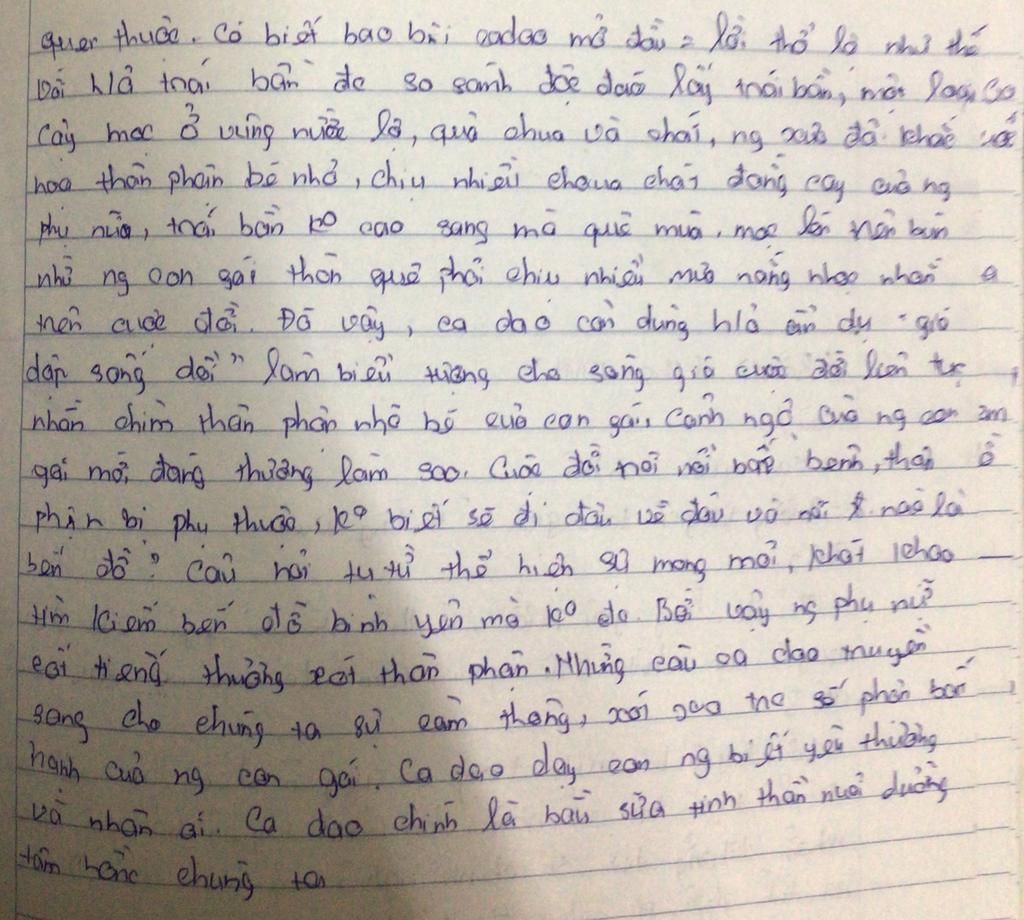 quen thuộc. Có biết bao bài ca dao mở đầu = lời thổ lộ như thế
Với h/ả trái bần đc so sánh độc đáo lấy trái bần, một loại
cây mọc ở vùng nước lợ, quả chua và chát, ng xưa đã khắc
hoạ thân phận bé nhỏ, chịu nhiều chua chát đắng cay của ng
phụ nữa, trái bần ko cao sang mà quê mùa, mọc lên nên bùn
như ng con gái thôn quê phải chịu nhiều mưa nắng nhọc nhằn
trên cuộc đời. Đó vậy, ca dao còn dùng h/ả ẩn dụ "gió
dập sóng dồi" làm biểu tượng cho sóng gió cuộc đời liên tục
nhấn chìm thân phận nhỏ bé của con gái. Cảnh ngộ của ng con
gái mới đáng thương làm sao. Cuộc đời nổi nổi bấp bênh, thân
phận bị phụ thuộc, ko biết sẽ đi đâu về đâu và nơi nào là
bến đỗ? Câu hỏi tu từ thể hiện sự mong mỏi, khát khao
tìm kiếm bến đỗ bình yên mà ko đc. Bởi vậy ng phụ nữ
cất tiếng thương xót thân phận. Những câu ca dao truyền
sang cho chúng ta sự cảm thông, xót xa trc số phận bất
hạnh của ng con gái. Ca dao dạy con ng biết yêu thương
và nhân ái. Ca dao chính là bầu sữa tinh thần nuôi dưỡng
tâm hồn chúng ta